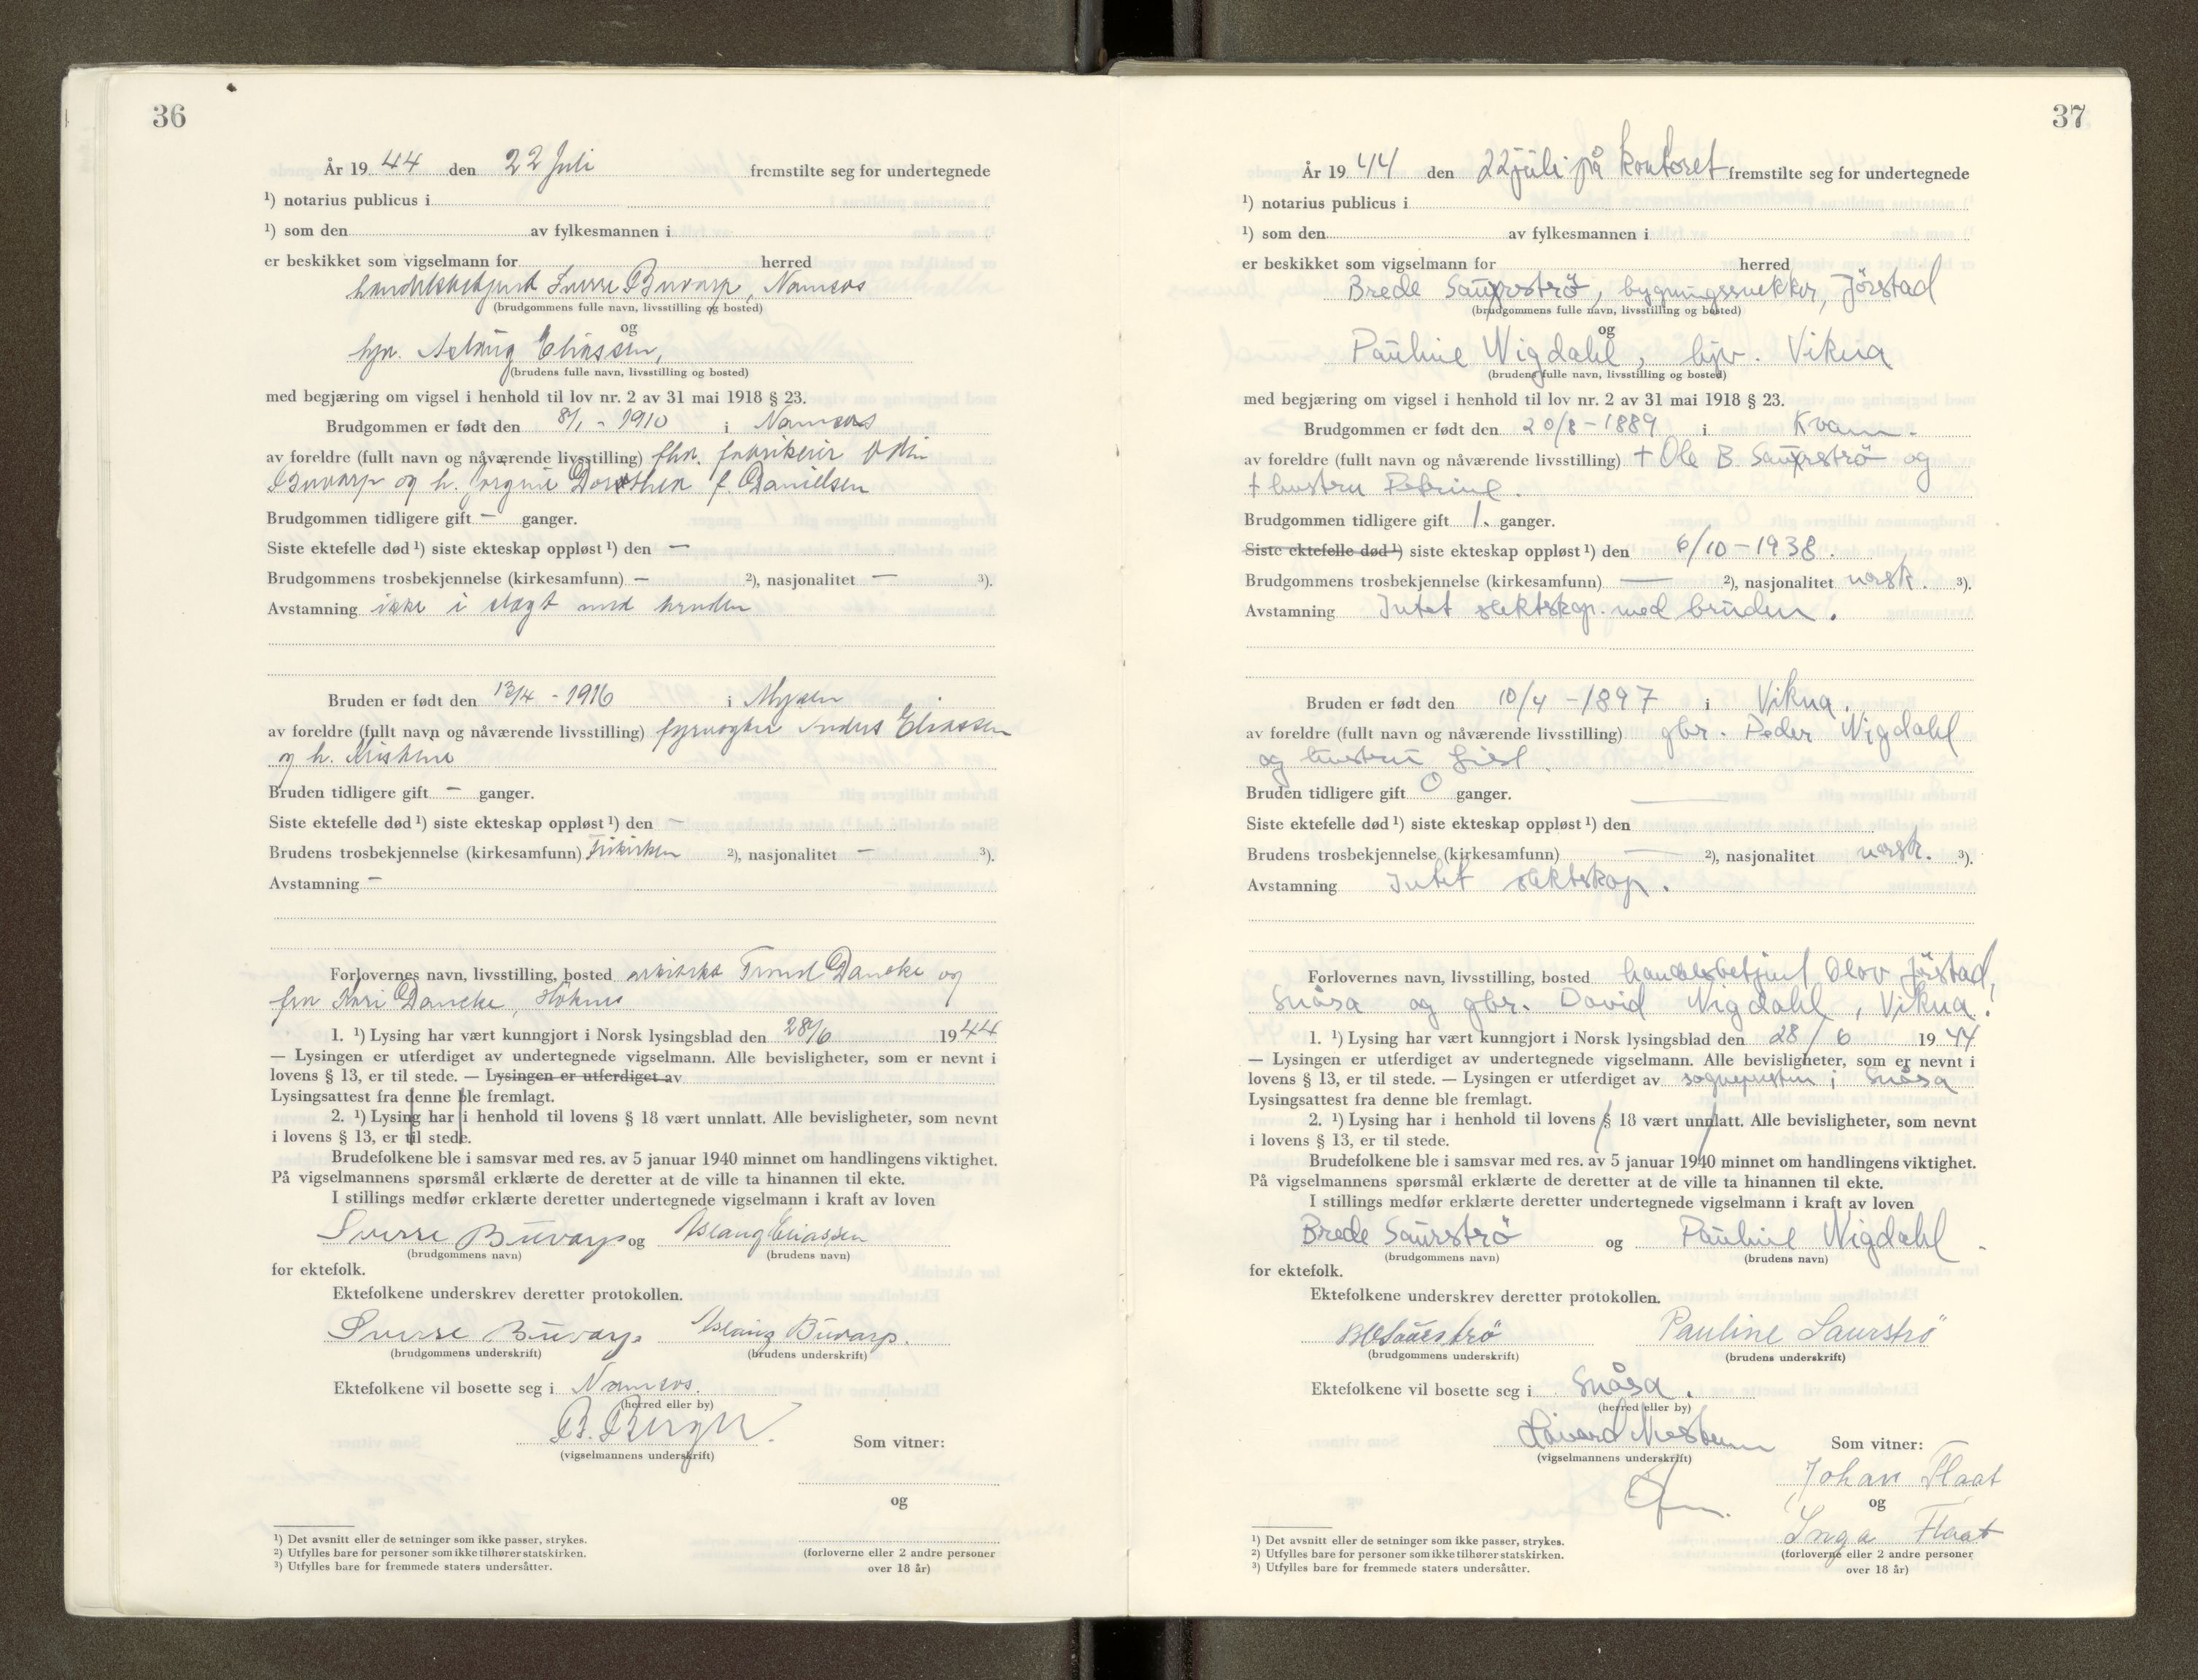 36
År 19 44 den 22 Juli fremstilte seg for undertegnede
¹) notarius publicus i
¹) som den av fylkesmannen i
er beskikket som vigselmann for herred
handelsbetjent Sverre Buvarp, Namsos
(brudgommens fulle navn, livsstilling og bosted)
og
hjv. Aslaug Eliassen,
(brudens fulle navn, livsstilling og bosted)
med begjæring om vigsel i henhold til lov nr. 2 av 31 mai 1918 § 23.
Brudgommen er født den 8/1 - 1910 i Namsos
av foreldre (fullt navn og nåværende livsstilling) fhv. fabrikeier Odin
Buvarp og h. Jørgine Dorothea f. Danielsen
Brudgommen tidligere gift - ganger.
Siste ektefelle død ¹) siste ekteskap oppløst ¹) den —
Brudgommens trosbekjennelse (kirkesamfunn) — ²), nasjonalitet — ³).
Avstamning ikke i slegt med bruden
Bruden er født den 13/4 - 1916 i Mysen
av foreldre (fullt navn og nåværende livsstilling) fyrvogter Anders Eliassen
og h. Kristene
Bruden tidligere gift - ganger.
Siste ektefelle død ¹) siste ekteskap oppløst ¹) den —
Brudens trosbekjennelse (kirkesamfunn) Frikirken ²), nasjonalitet — ³).
Avstamning —
Forlovernes navn, livsstilling, bosted arkitekt Trond Dancke og
fru Kari Dancke,
1. ¹) Lysing har vært kunngjort i Norsk lysingsblad den 28/6 19 44
— Lysingen er utferdiget av undertegnede vigselmann. Alle bevisligheter, som er nevnt i
lovens § 13, er til stede. — Lysingen er utferdiget av
Lysingsattest fra denne ble fremlagt.
2. ¹) Lysing har i henhold til lovens § 18 vært unnlatt. Alle bevisligheter, som nevnt
i lovens § 13, er til stede.
Brudefolkene ble i samsvar med res. av 5 januar 1940 minnet om handlingens viktighet.
På vigselmannens spørsmål erklærte de deretter at de ville ta hinannen til ekte.
I stillings medfør erklærte deretter undertegnede vigselmann i kraft av loven
Sverre Buvarp og Aslaug Eliassen
(brudgommens navn) (brudens navn)
for ektefolk.
Ektefolkene underskrev deretter protokollen.
Sverre Buvarp Aslaug Buvarp.
(brudgommens underskrift) (brudens underskrift)
Ektefolkene vil bosette seg i Namsos.
(herred eller by)
Som vitner:
(vigselmannens underskrift)
og
¹) Det avsnitt eller de setninger som ikke passer, strykes.
²) Utfylles bare for personer som ikke tilhører statskirken.
³) Utfylles bare for fremmede staters undersåtter.
(forloverne eller 2 andre personer
over 18 år)
37
År 19 44 den 22 juli på kontoret fremstilte seg for undertegnede
¹) notarius publicus i
¹) som den av fylkesmannen i
er beskikket som vigselmann for herred
Brede Saurstrø, bygningssnekker, Jørstad
(brudgommens fulle navn, livsstilling og bosted)
og
Pauline Wigdahl, hjv. Vikna
(brudens fulle navn, livsstilling og bosted)
med begjæring om vigsel i henhold til lov nr. 2 av 31 mai 1918 § 23.
Brudgommen er født den 20/8 - 1889 i Kvam.
av foreldre (fullt navn og nåværende livsstilling) + Ole B. Saurstrø og
+ hustru Petrine.
Brudgommen tidligere gift 1. ganger.
Siste ektefelle død ¹) siste ekteskap oppløst ¹) den 6/10 - 1938.
Brudgommens trosbekjennelse (kirkesamfunn) — ²), nasjonalitet norsk. ³).
Avstamning Intet slektskap med bruden.
Bruden er født den 10/4 - 1897 i Vikna.
av foreldre (fullt navn og nåværende livsstilling) gbr. Peder Wigdahl
og hustru
Bruden tidligere gift 0 ganger.
Siste ektefelle død ¹) siste ekteskap oppløst ¹) den
Brudens trosbekjennelse (kirkesamfunn) — ²), nasjonalitet norsk. ³).
Avstamning Intet slektskap.
Forlovernes navn, livsstilling, bosted handelsbetjent Olov Jørstad,
Snåsa og gbr. David Wigdahl, Vikna.
1. ¹) Lysing har vært kunngjort i Norsk lysingsblad den 28/6 19 44
— Lysingen er utferdiget av undertegnede vigselmann. Alle bevisligheter, som er nevnt i
lovens § 13, er til stede. — Lysingen er utferdiget av sogneprsten i Snåsa
Lysingsattest fra denne ble fremlagt.
2. ¹) Lysing har i henhold til lovens § 18 vært unnlatt. Alle bevisligheter, som nevnt
i lovens § 13, er til stede.
Brudefolkene ble i samsvar med res. av 5 januar 1940 minnet om handlingens viktighet.
På vigselmannens spørsmål erklærte de deretter at de ville ta hinannen til ekte.
I stillings medfør erklærte deretter undertegnede vigselmann i kraft av loven
Brede Saurstrø og Pauline Wigdahl
(brudgommens navn) (brudens navn)
for ektefolk.
Ektefolkene underskrev deretter protokollen.
BO Saurstrø Pauline Saurstrø
(brudgommens underskrift) (brudens underskrift)
Ektefolkene vil bosette seg i Snåsa.
(herred eller by)
Som vitner:
(vigselmannens underskrift)
Johan Flaat
og
Inga Flaat
¹) Det avsnitt eller de setninger som ikke passer, strykes.
²) Utfylles bare for personer som ikke tilhører statskirken.
³) Utfylles bare for fremmede staters undersåtter.
(forloverne eller 2 andre personer
over 18 år)